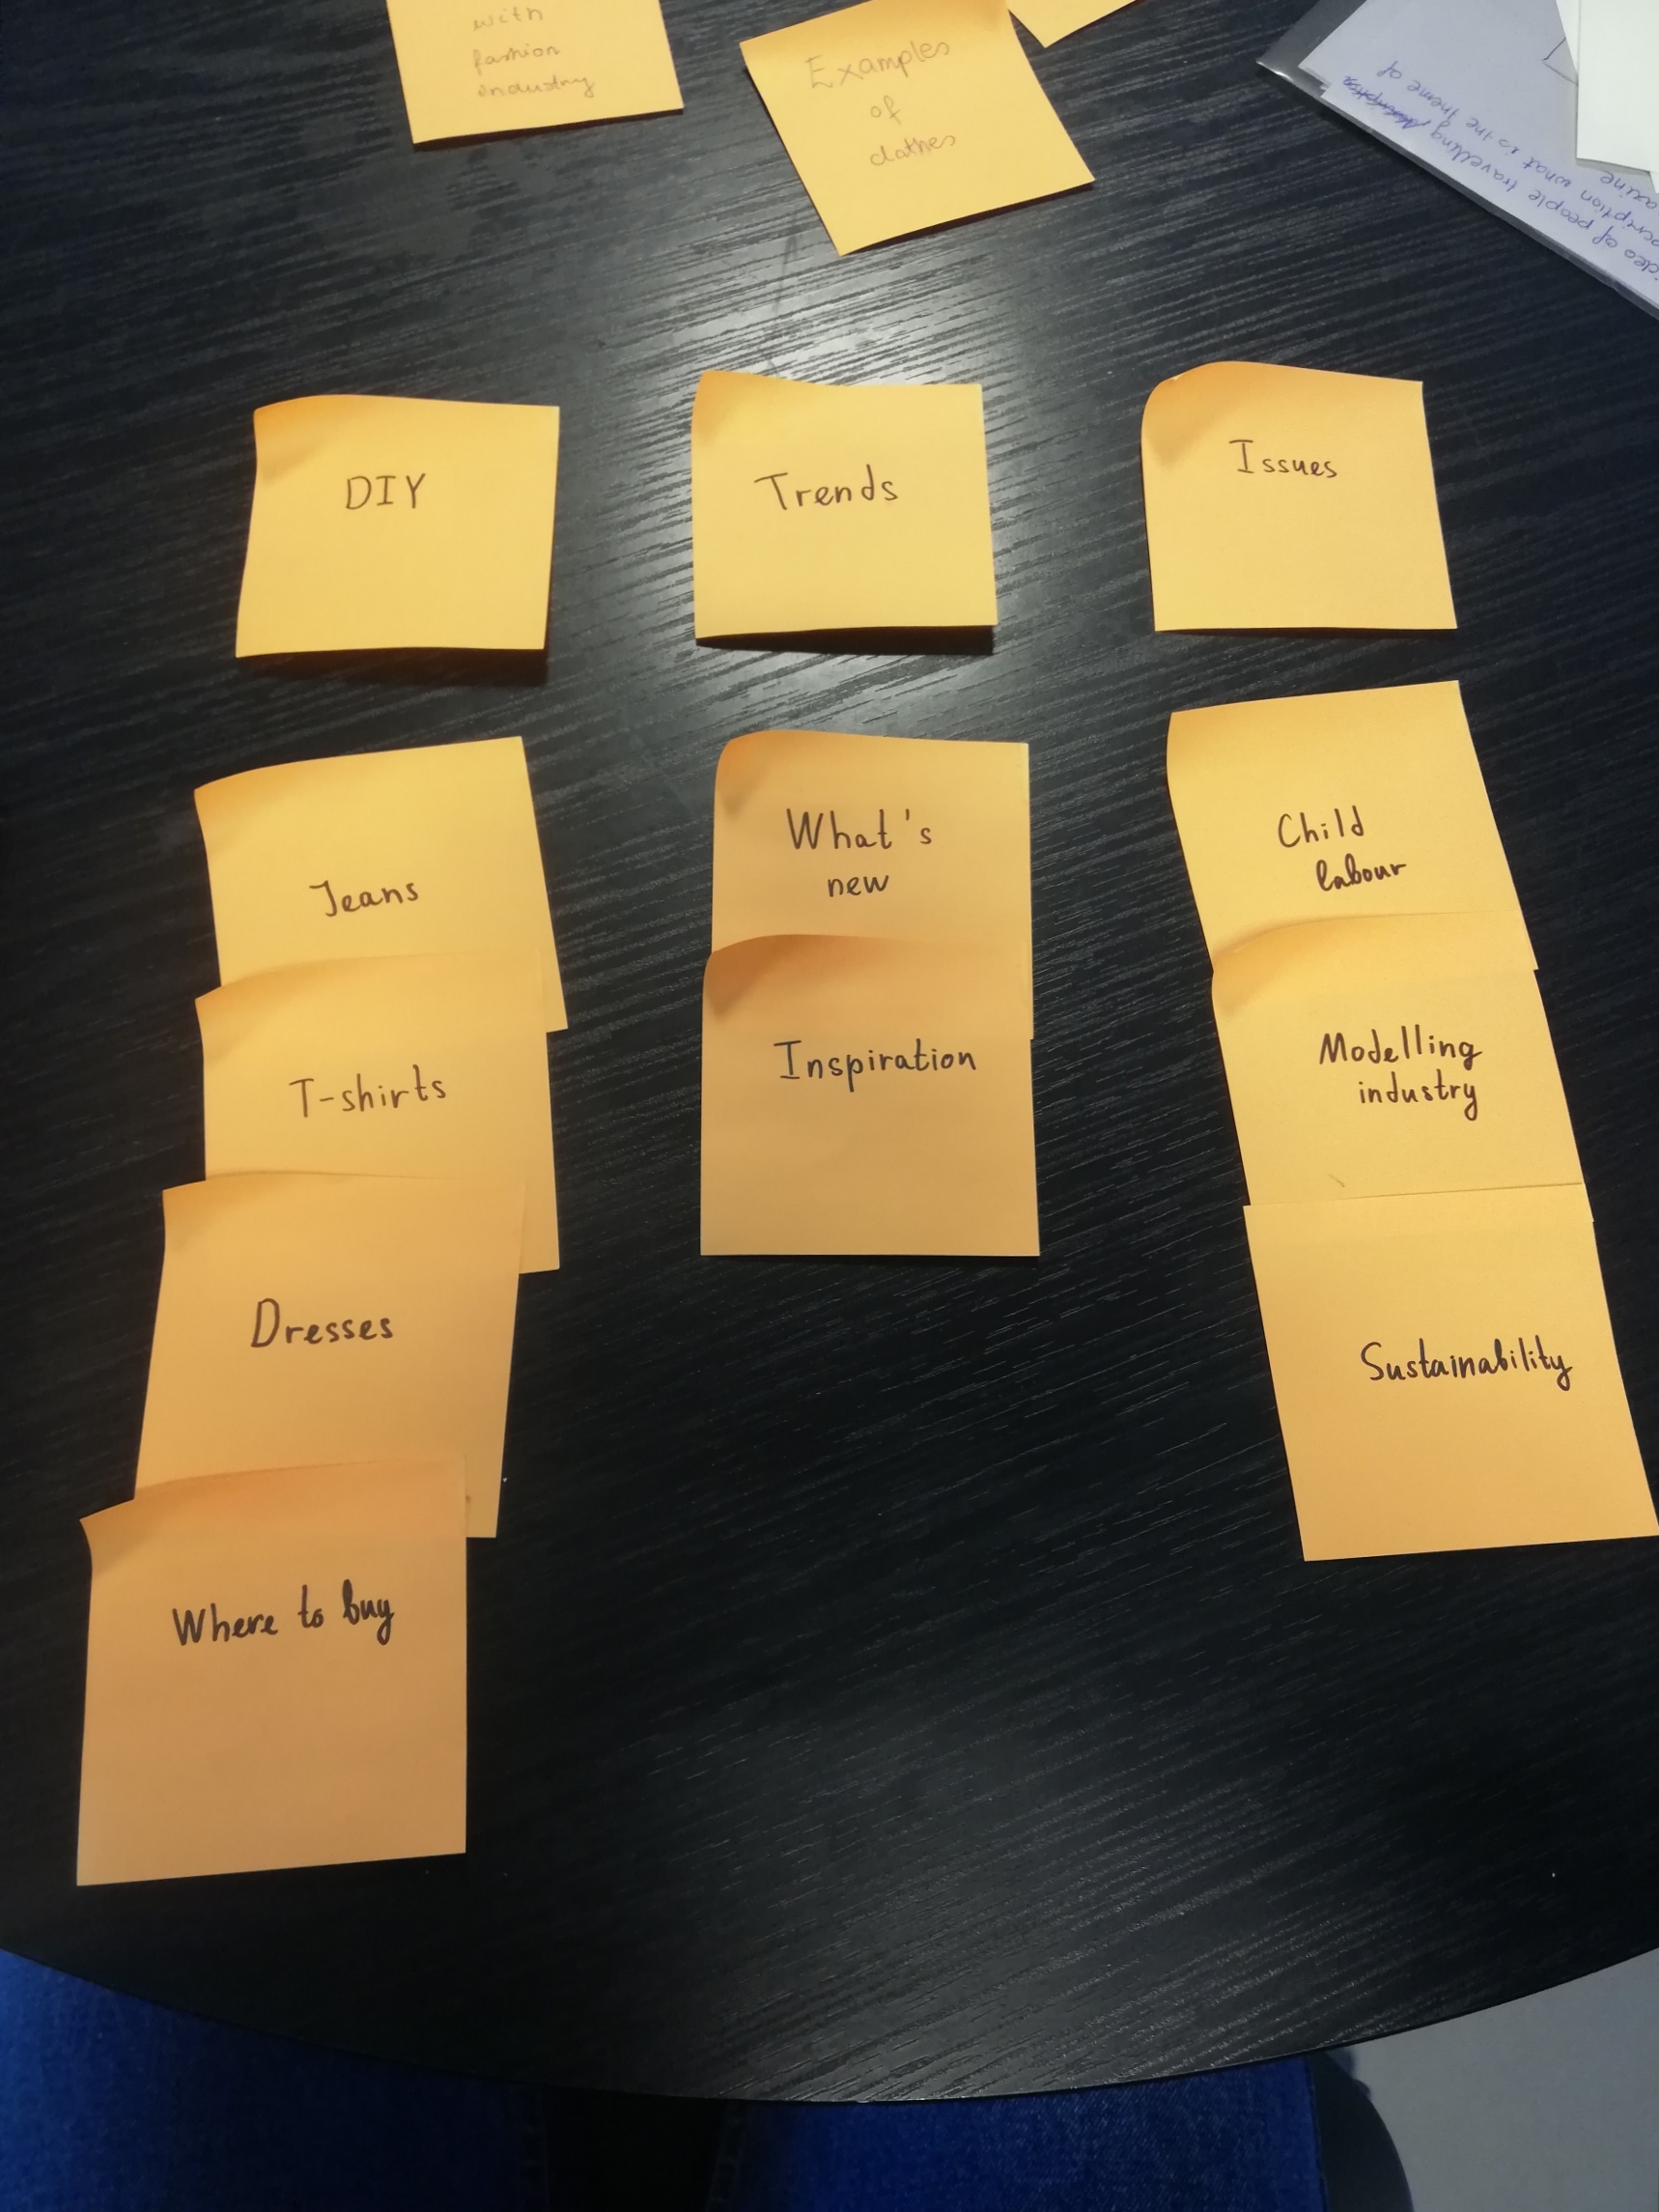 with
fashion
industry
Examples
of
clothes
theme of
travelling what is the
of people
DIY
Trends
Issues
Jeans
T-shirts
Dresses
Where to buy
What's
new
Inspiration
Child
labour
Modelling
industry
Sustainability